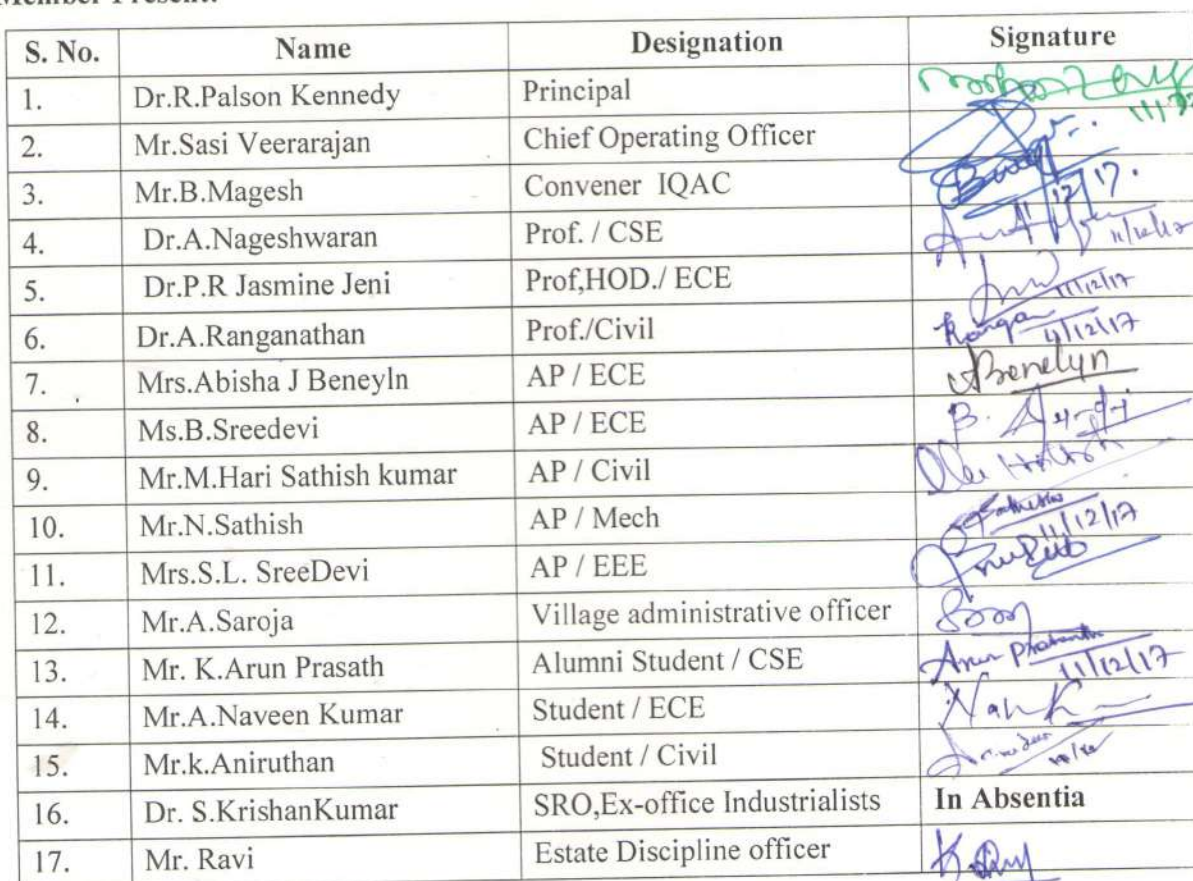 S. No. Name Designation Signature
1. Dr.R.Palson Kennedy Principal
2. Mr.Sasi Veerarajan Chief Operating Officer
3. Mr.B.Magesh Convener IQAC 12/17.
4. Dr.A.Nageshwaran Prof. / CSE
5. Dr.P.R Jasmine Jeni Prof,HOD./ ECE 11/12/17
6. Dr.A.Ranganathan Prof./Civil Ranga 11/12/17
7. Mrs.Abisha J Beneyln AP / ECE Benelyn
8. Ms.B.Sreedevi AP / ECE B.
9. Mr.M.Hari Sathish kumar AP / Civil
10. Mr.N.Sathish AP / Mech 11/12/17
11. Mrs.S.L. SreeDevi AP / EEE
12. Mr.A.Saroja Village administrative officer
13. Mr. K.Arun Prasath Alumni Student / CSE Arun 11/12/17
14. Mr.A.Naveen Kumar Student / ECE
15. Mr.k.Aniruthan Student / Civil
16. Dr. S.KrishanKumar SRO,Ex-office Industrialists In Absentia
17. Mr. Ravi Estate Discipline officer